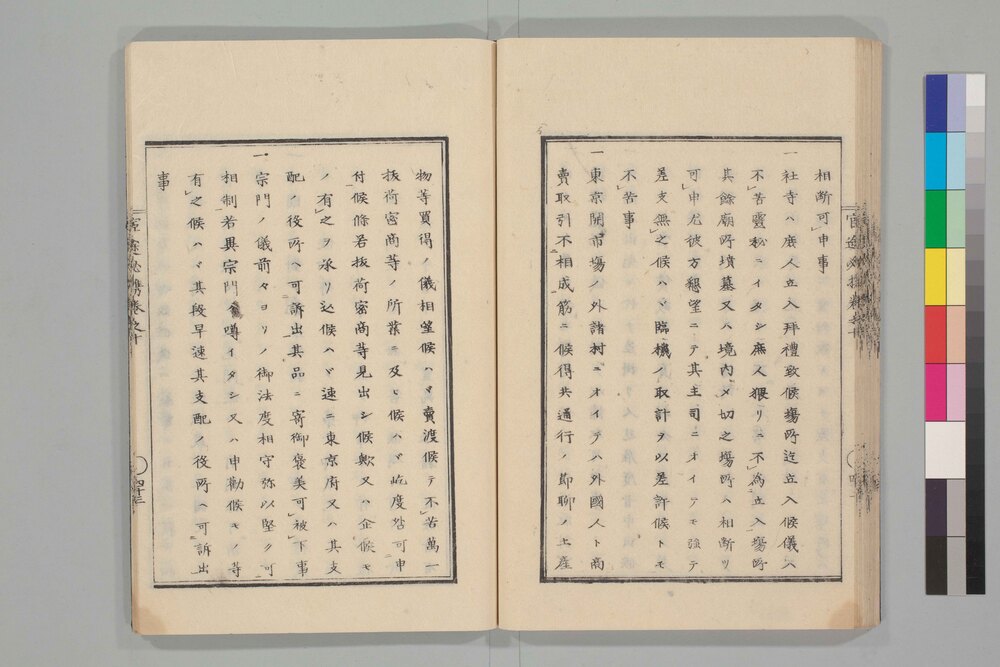 相断可申事
一 社寺ハ庶人立入拜禮致候場所迄立入候儀ハ
不苦靈秘ニイタシ庶人猥リニ不為立入場所
其餘廟所墳墓又ハ境内〆切之場所ハ相断リ
可申尤彼方懇望ニテ其主司ニオイテモ強テ
差支無之候ハヾ臨機ノ取計ヲ以差許候トモ
不苦事
一 東京開市場ノ外諸村ニオイテハ外國人ト商
賣取引不相成筋ニ候得共通行ノ節聊ノ土産
物等買得ノ儀相望候ハヾ賣渡候テ不苦萬一
抜荷密商等ノ所業ニ及ヒ候ハヾ屹度咎可申
付候條若抜荷密商等見出シ候歟又ハ企候モ
ノ有之ヲ承リ込候ハヾ速ニ東京府又ハ其支
配ノ役所ヘ可訴出其品ニ寄御褒美可被下事
一 宗門ノ儀前々ヨリノ御法度相守弥以堅ク可
相制若異宗門ノ噂イタシ又ハ申勸候モノ等
有之候ハヾ其段早速其支配ノ役所ヘ可訴出
事
四十三